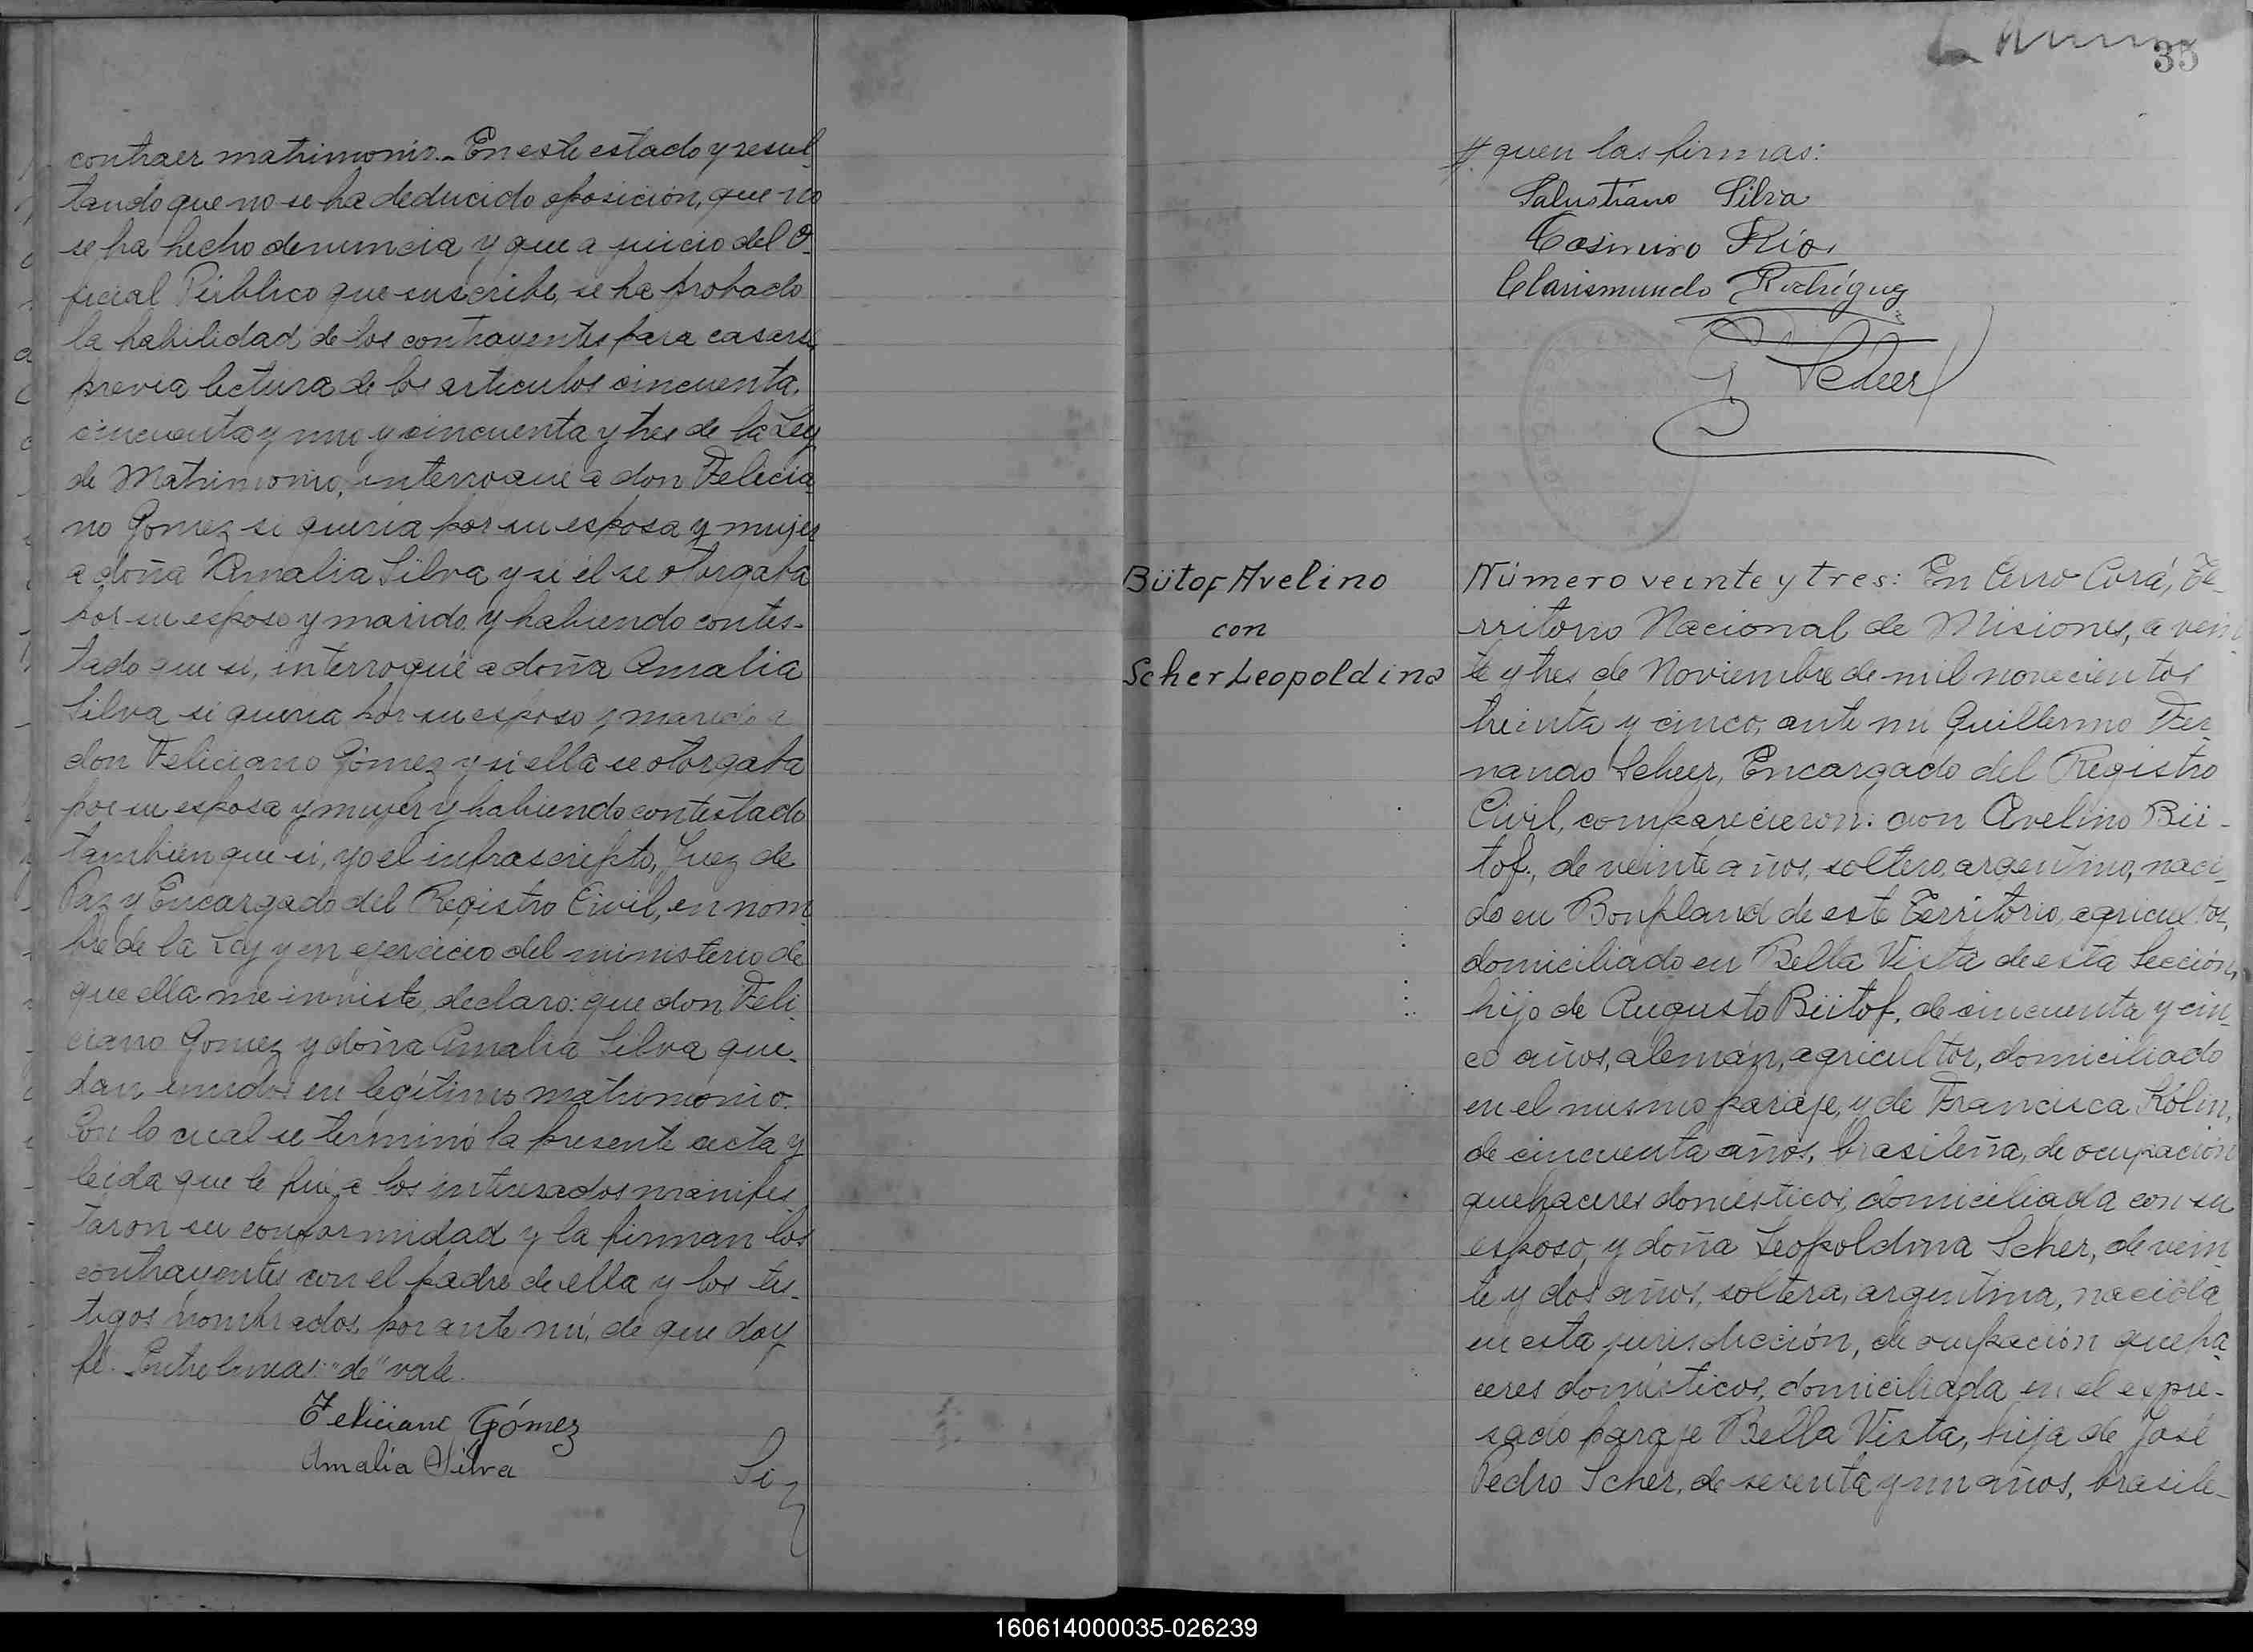 contraer matrimonio.- En este estado y resul-
tando que no se ha deducido oposición, que no
se ha hecho denuncia y que a juicio del O-
ficial Público que suscribe, se ha probado
la habilidad de los contrayentes para casarse,
previa lectura de los artículos cincuenta,
cincuenta y uno y cincuenta y tres de la Ley
de Matrimonio, interrogué a don Felicia-
no Gomez si quería por su esposa y mujer
a doña Amalia Silva y si él se otorgaba
por su esposo y marido y habiendo contes-
tado que sí, interrogué a doña Amalia
Silva si quería por su esposo y marido a
don Feliciano Gómez y si ella se otorgaba
por su esposa y mujer y habiendo contestado
también que sí, yo el infrascripto, Juez de
Paz y Encargado del Registro Civil, en nom-
bre de la Ley y en ejercicio del ministerio de
que ella me inviste, declaro: que don Feli-
ciano Gomez y doña Amalia Silva que-
dan unidos en legítimo matrimonio.
Con lo cual se terminó la presente acta y
leída que le fué a los interesados manifes-
taron su conformidad y la firman los
contrayentes con el padre de ella y los tes-
tigos nombrados, por ante mí, de que doy
fé. Entre lineas: "de" vale.
Feliciano Gómez
Amalia Silva
Si
35
# quen las firmas:
Salustiano Silva
Casimiro Ríos
Clarismundo Rodríguez
G. Scheer
Bütof Avelino
con
Scher Leopoldina
Número veinte y tres: En Cerro Corá, Te-
rritorio Nacional de Misiones, a vein-
te y tres de Noviembre de mil novecientos
treinta y cinco, ante mi Guillermo Fer-
nando Scheer, Encargado del Registro
Civil, comparecieron: don Avelino Bü-
tof, de veinte años, soltero, argentino, naci-
do en Bonpland de este Territorio, agricultor,
domiciliado en Bella Vista de esta Sección,
hijo de Augusto Bütof, de cincuenta y cin-
co años, alemán, agricultor, domiciliado
en el mismo paraje, y de Francisca Kólin,
de cincuenta años, brasileña, de ocupación
quehaceres domésticos, domiciliada con su
esposo, y doña Leopoldina Scher, de vein-
te y dos años, soltera, argentina, nacida
en esta jurisdicción, de ocupación queha-
ceres domésticos, domiciliada en el expre-
sado paraje Bella Vista, hija de José
Pedro Scher, de y un años, brasile-
160614000035-026239